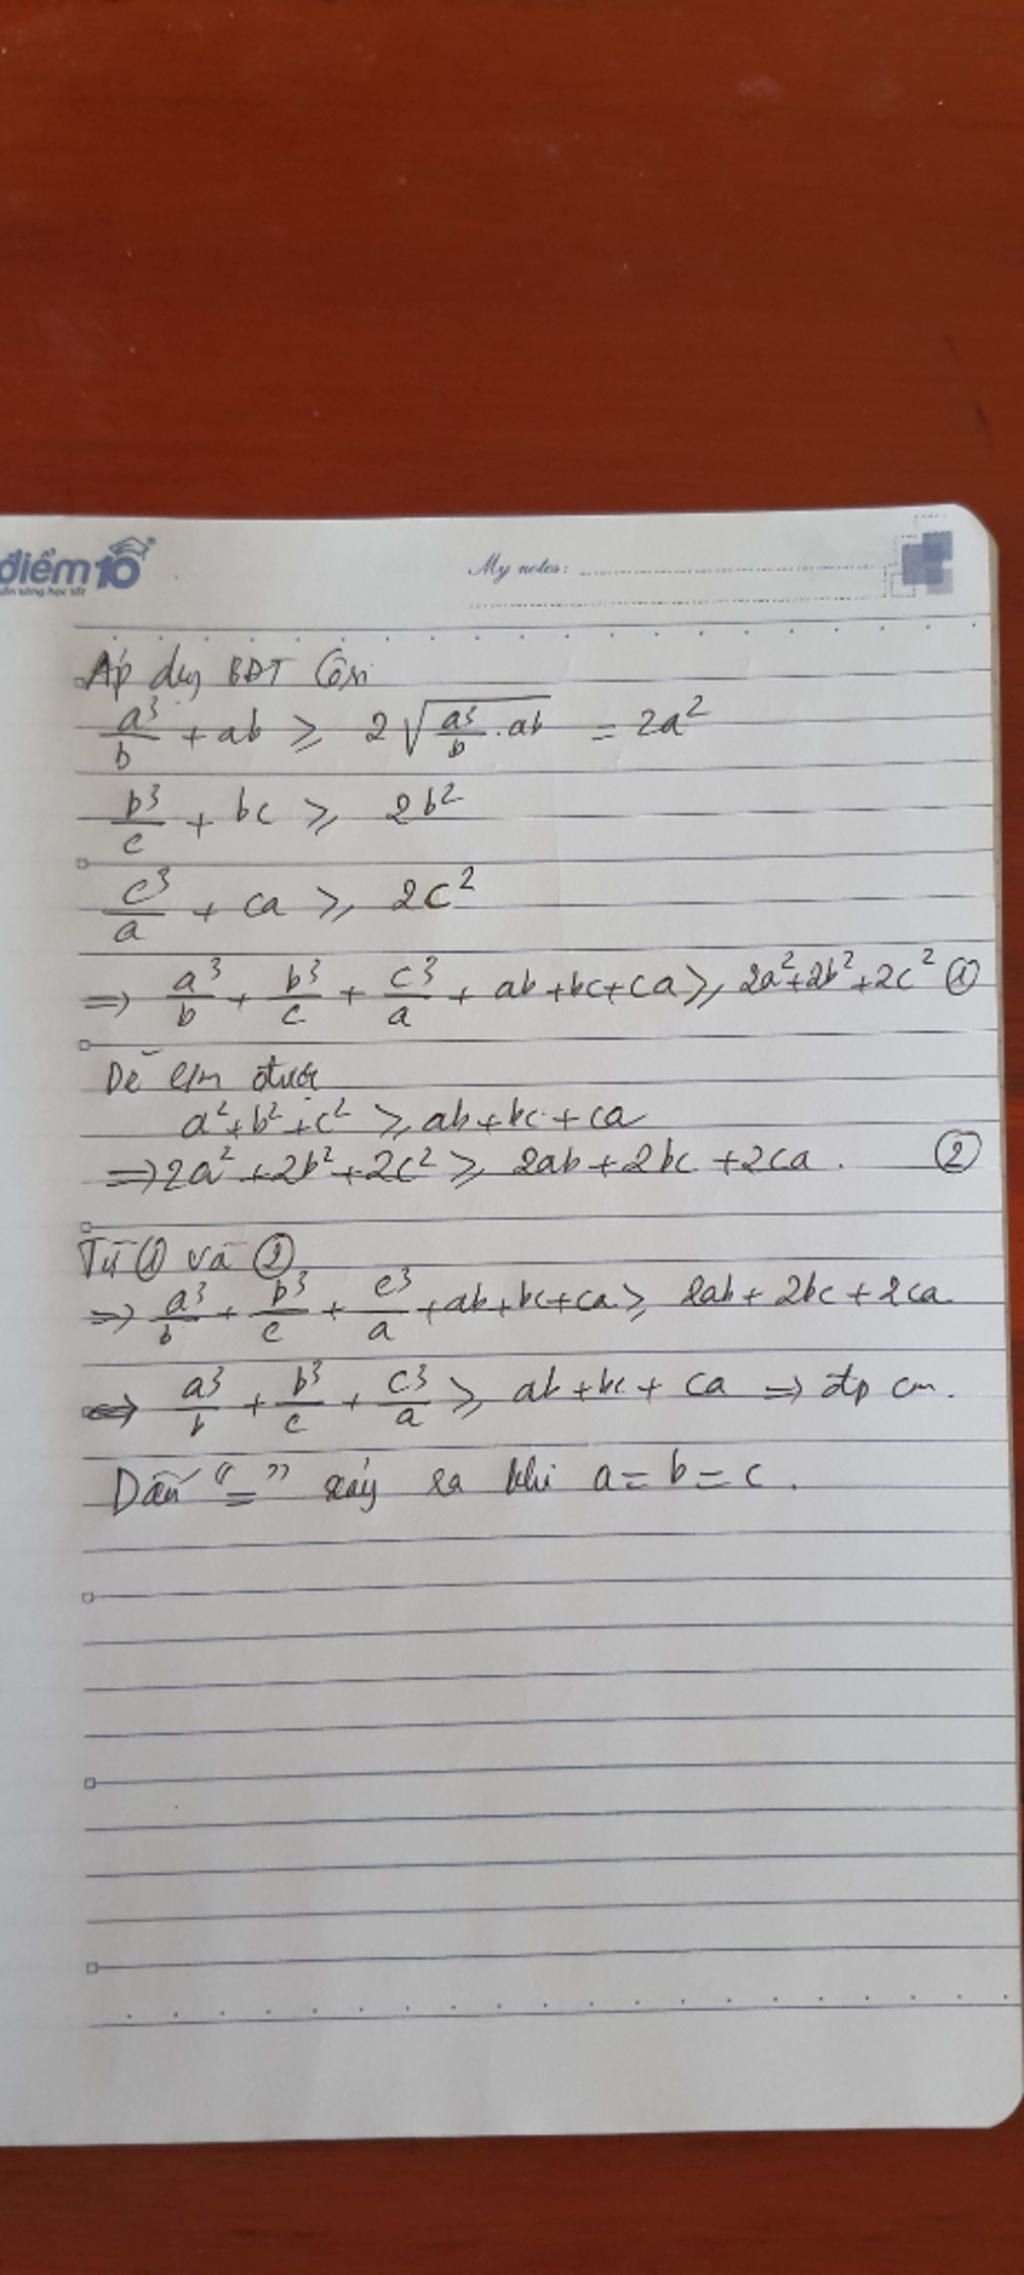 điểm 10
My notes:
Áp dụng BĐT Côsi
a³/b + ab ≥ 2√(a³/b . ab) = 2a²
b³/c + bc ≥ 2b²
c³/a + ca ≥ 2c²
⇒ a³/b + b³/c + c³/a + ab + bc + ca ≥ 2a² + 2b² + 2c² ①
Dễ c/m được
a² + b² + c² ≥ ab + bc + ca
⇒ 2a² + 2b² + 2c² ≥ 2ab + 2bc + 2ca . ②
Từ ① và ②
⇒ a³/b + b³/c + c³/a + ab + bc + ca ≥ 2ab + 2bc + 2ca
⇔ a³/b + b³/c + c³/a ≥ ab + bc + ca ⇒ đpcm.
Dấu "=" xảy ra khi a = b = c.